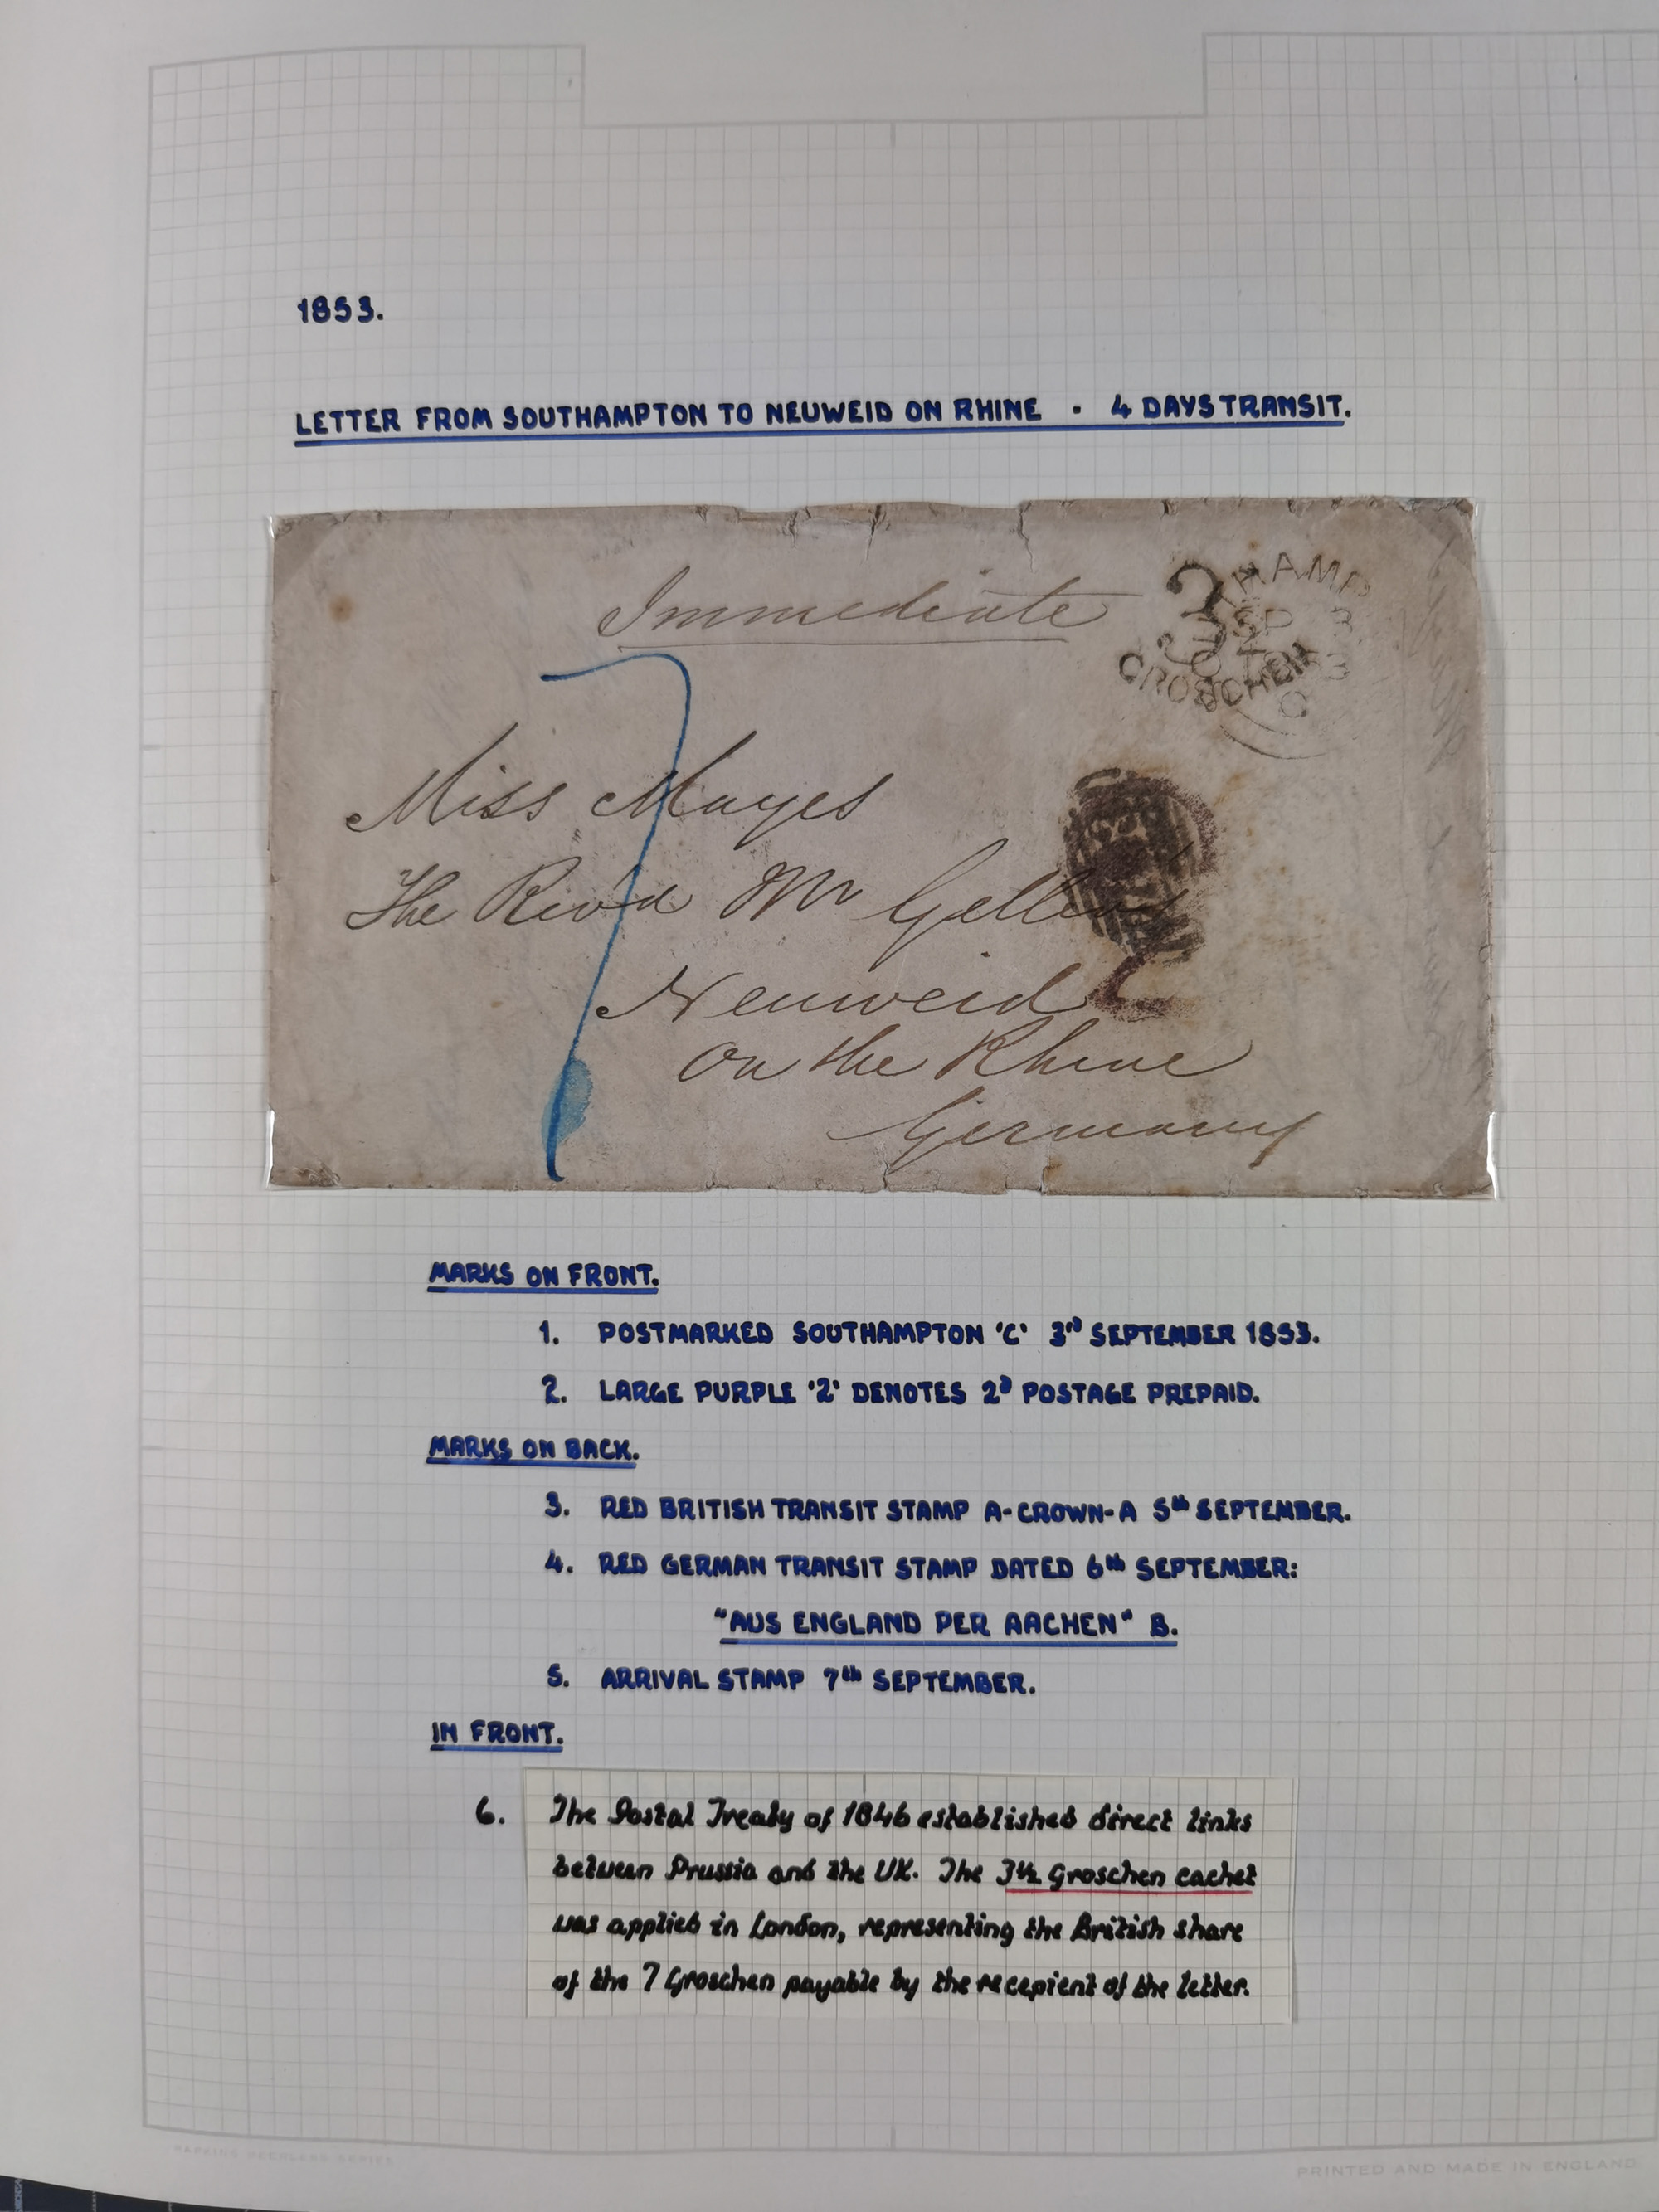 1853.
LETTER FROM SOUTHAMPTON TO NEUWEID ON RHINE · 4 DAYS TRANSIT.
Immediate
3½
GROSCHEN
HAMP
SP 3
C
7
Miss Mayes
The Revd Mr Geller's
Neuweid
2
On the Rhine
Germany
MARKS ON FRONT.
1. POSTMARKED SOUTHAMPTON 'C' 3rd SEPTEMBER 1853.
2. LARGE PURPLE '2' DENOTES 2D POSTAGE PREPAID.
MARKS ON BACK.
3. RED BRITISH TRANSIT STAMP A-CROWN-A 5th SEPTEMBER.
4. RED GERMAN TRANSIT STAMP DATED 6th SEPTEMBER:
"AUS ENGLAND PER AACHEN" B.
5. ARRIVAL STAMP 7th SEPTEMBER.
IN FRONT.
6. The Postal Treaty of 1846 established direct links
between Prussia and the UK. The 3½ Groschen cachet
was applied in London, representing the British share
of the 7 Groschen payable by the recepient of the letter.
PARKINS PEERLESS SERIES
PRINTED AND MADE IN ENGLAND